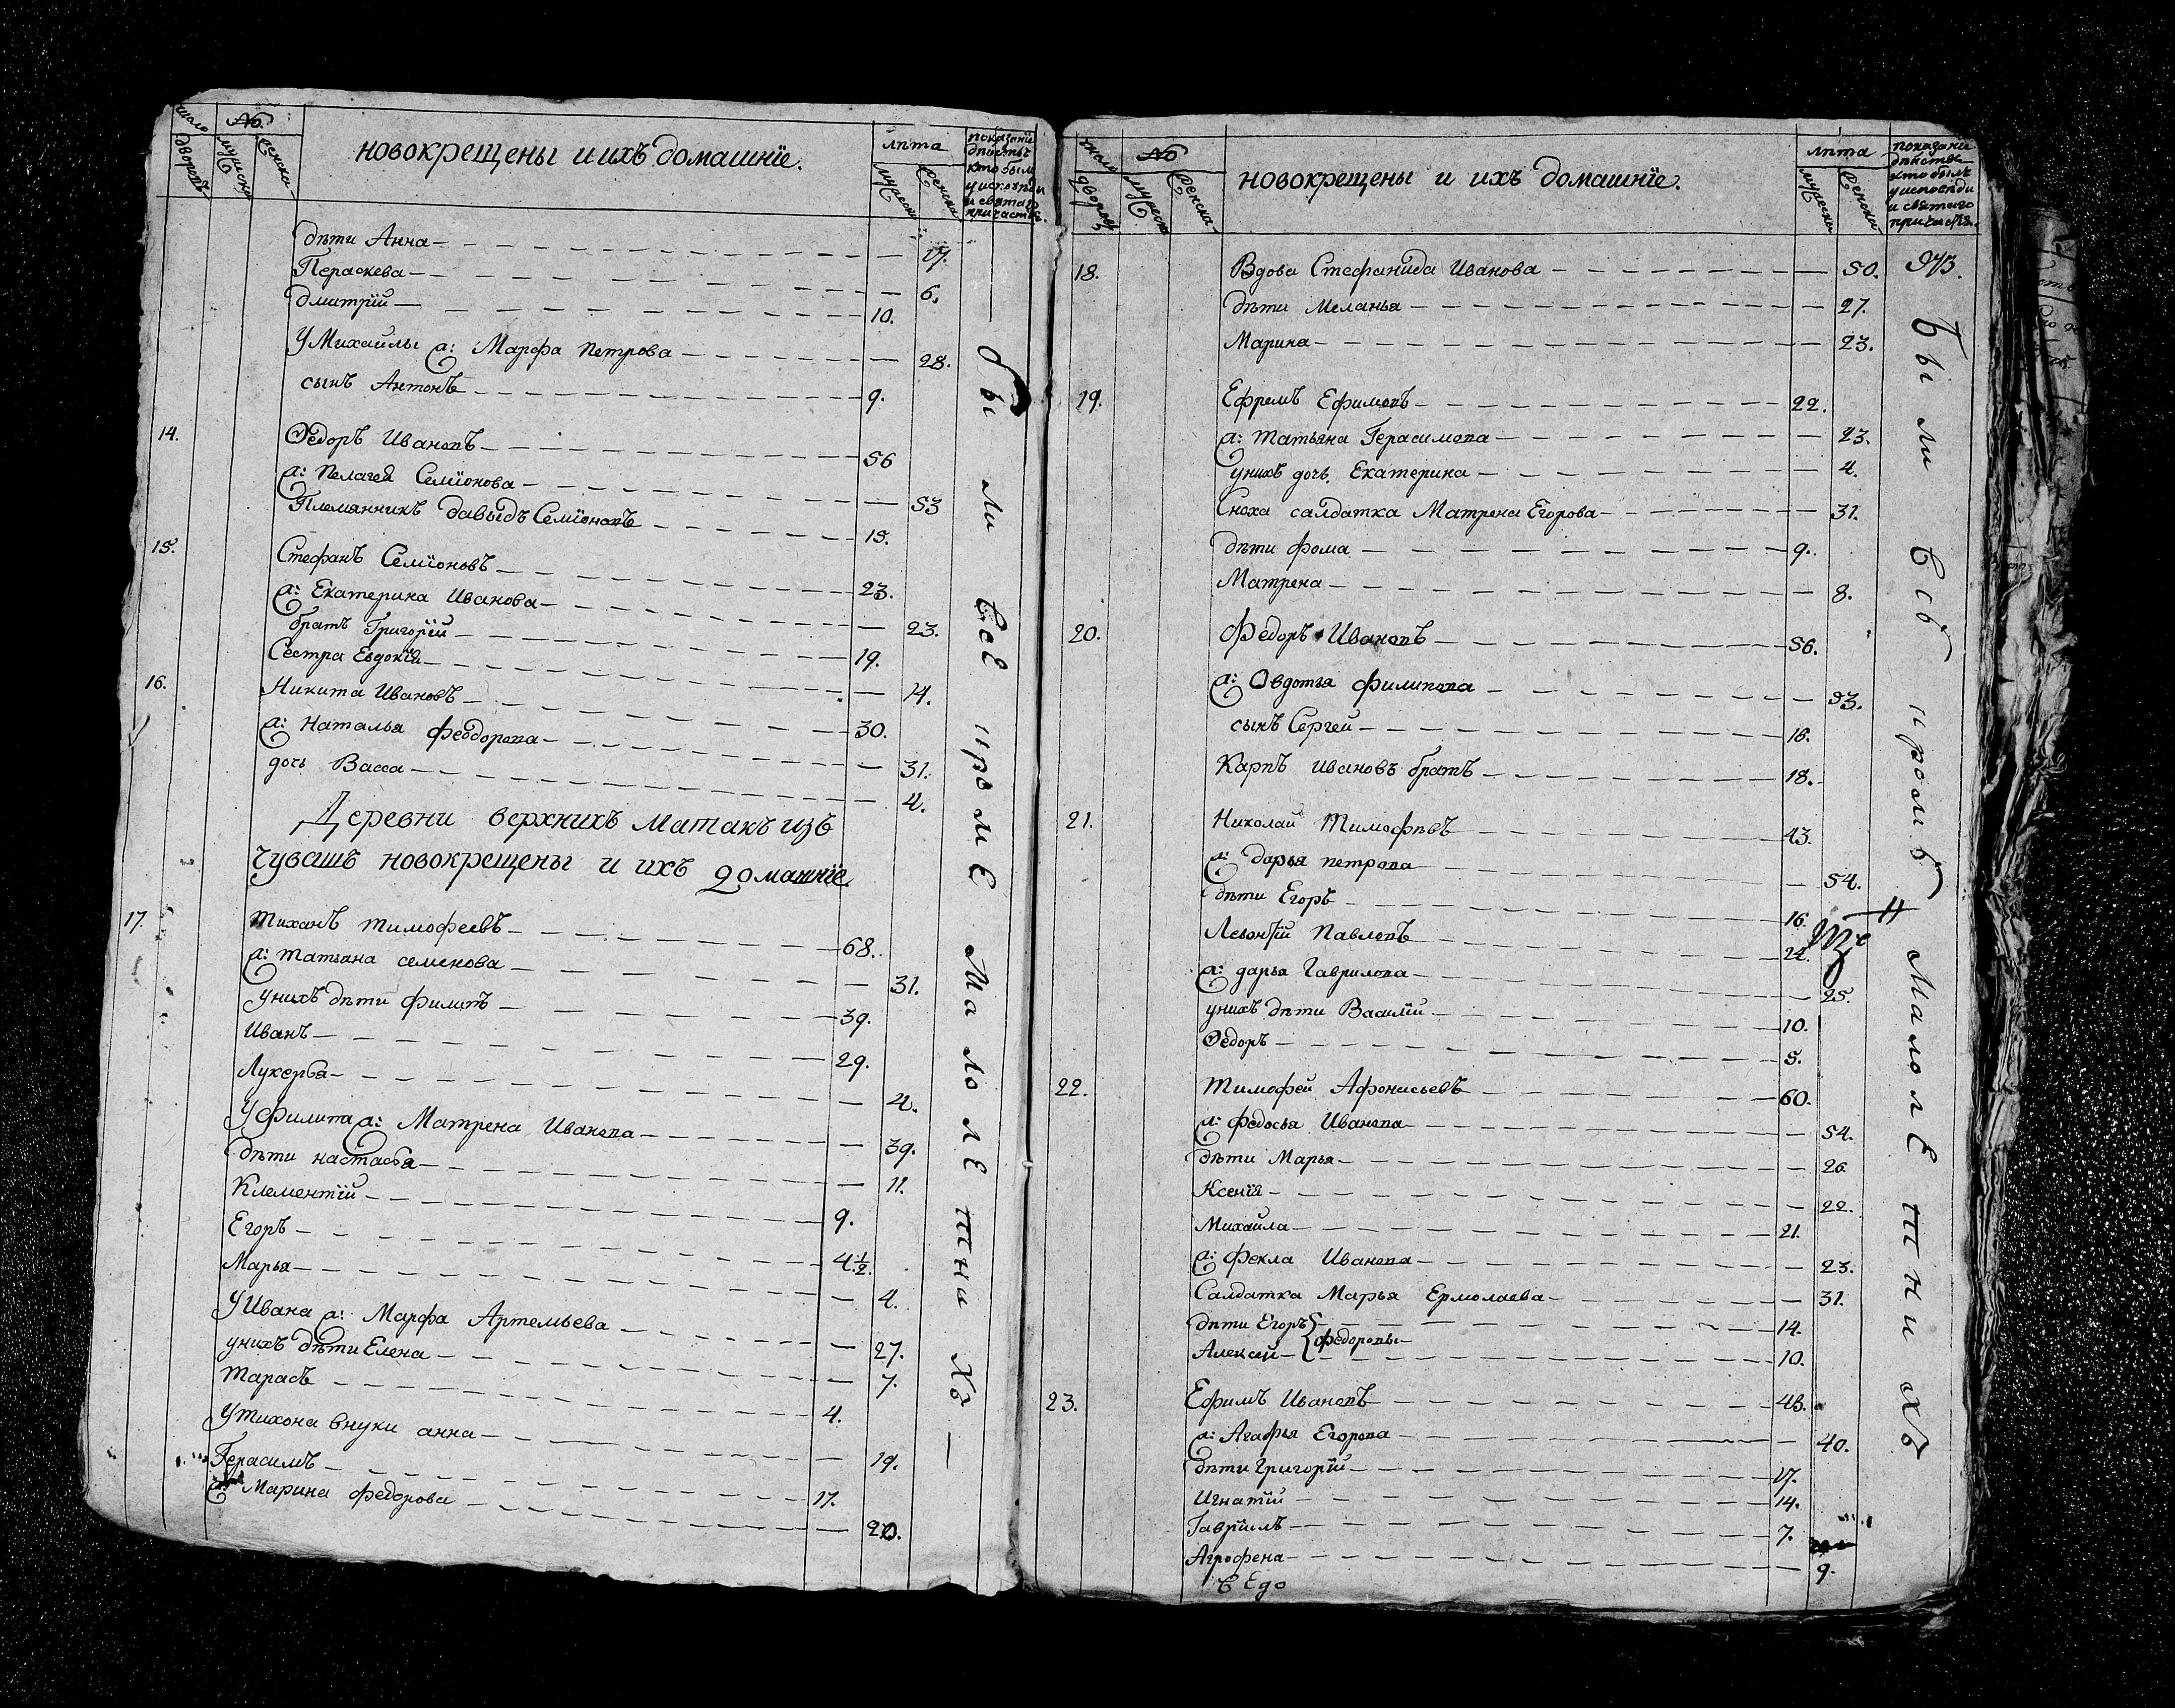 число дворовъ
№
мужеска
женска
новокрещены и ихъ домашнїе.
лѣта
мужеска
женска
показанїе
дѣйствъ
кто былъ
у исповѣди
и святаго
причастїя
дѣти Анна — 17.
Пераскева — 6.
дмитрїй — 10.
У Михайлы ж: Марфа Петрова — 28.
сынъ Антонъ — 9.
14. Ѳедоръ Ивановъ — 56
ж: Пелагея Семїонова — 53
Племянникъ давыдъ Семїоновъ — 15.
15. Стефанъ Семїоновъ — 23.
ж: Екатерина Иванова — 23.
братъ Григорїй — 19.
Сестра Евдокїя — 14.
16. Никита Ивановъ — 30.
ж: Наталья Феодорова — 31.
дочь Васса — 4.
Деревни верхнихъ матакъ изъ
чувашъ новокрещены и ихъ домашнїе.
17. Тиханъ тимофеевъ — 68.
ж: татьяна семенова — 31.
у нихъ дѣти филипъ — 39.
Иванъ — 29.
Лукерья — 4.
У Филипа ж: Матрена Иванова — 39.
дѣти настасья — 11.
Клементїй — 9.
Егоръ — 4 1/2.
Марья — 4.
У Ивана ж: Марфа Артемьева — 27.
у нихъ дѣти Елена — 7.
Тарасъ — 4.
У тихона внуки анна — 19.
Герасимъ — 17.
ж: Марина Федорова — 20.
были все кромѣ малолетнихъ —
число дворовъ
№
мужеска
женска
новокрещены и ихъ домашнїе.
лѣта
мужеска
женска
показанїе
дѣйствъ
кто былъ
у исповѣди
и святаго
причастїя.
973.
18. Вдова Стефанида Иванова — 50.
дѣти Меланья — 27.
Марина — 23.
19. Ефремъ Ефимовъ — 22.
ж: Татьяна Герасимова — 23.
у нихъ дочь Екатерина — 4.
Сноха салдатка Матрена Егорова — 31.
дѣти фома — 9.
Матрена — 8.
20. Федоръ Ивановъ — 56.
ж: Овдотья Филипова — 53.
сынъ Сергей — 18.
Карпъ ивановъ братъ — 18.
21. Николай Тимофѣевъ — 43.
ж: дарья петрова — 54.
дѣти Егоръ — 16.
Левонтїй Павловъ — 24.
ж: дарья Гаврилова — 25.
у нихъ дѣти Василїй — 10.
Ѳедоръ — 5.
22. Тимофей Афонасьевъ — 60.
ж: Федосья Иванова — 54.
дѣти Марья — 26.
Ксенїя — 22.
Михайла — 21.
ж: Фекла Иванова — 23.
Салдатка Марья Ермолаева — 31.
дѣти Егоръ — 14.
федоровы
Алексей — 10.
23. Ефимъ Ивановъ — 43.
ж: Агафья Егорова — 40.
дѣти григорїй — 17.
Игнатїй — 14.
Гаврїилъ — 7.
Агрофена — 9.
Были всѣ кромѣ малолетнихъ